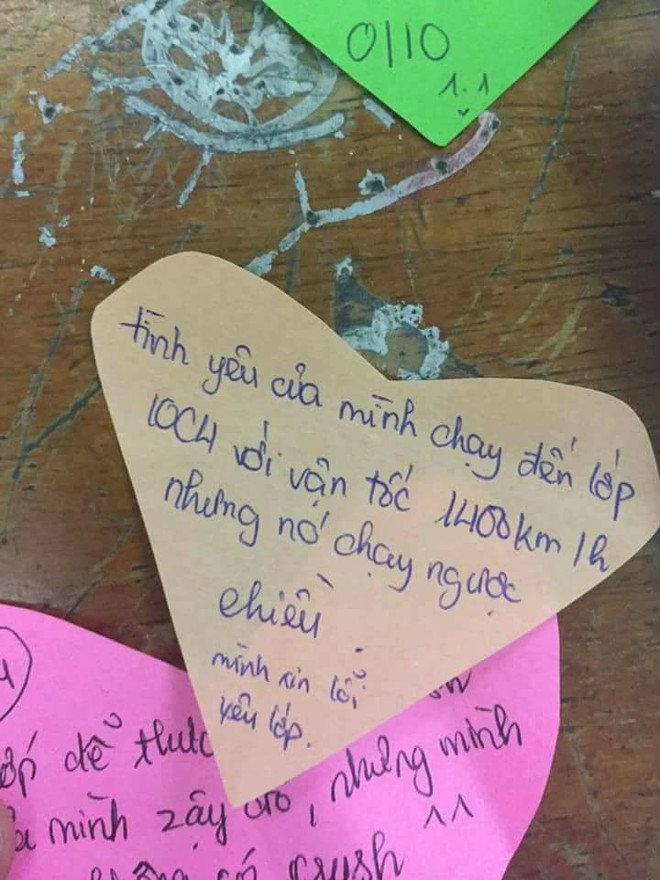 0110
1.1
tình yêu của mình chạy đến lớp
10C4 với vận tốc 1400km/h
nhưng nó chạy ngược
chiều
mình xin lỗi
yêu lớp.
để thươ
mình zậy đó, nhưng mình
có crush ^^